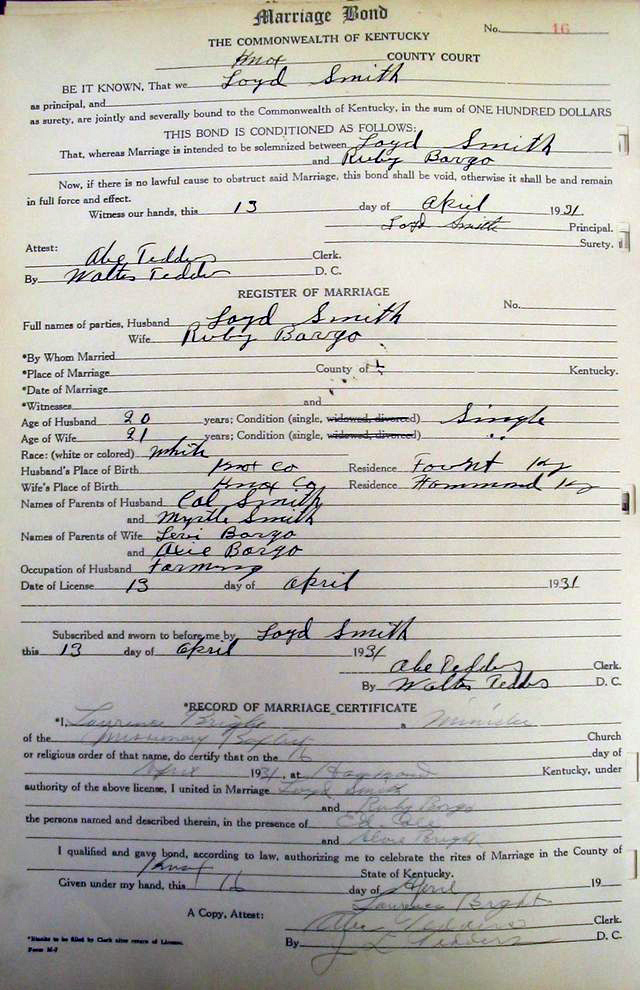 Marriage Bond
No. 16
THE COMMONWEALTH OF KENTUCKY
Knox COUNTY COURT
BE IT KNOWN, That we Loyd Smith
as principal, and
as surety, are jointly and severally bound to the Commonwealth of Kentucky, in the sum of ONE HUNDRED DOLLARS
THIS BOND IS CONDITIONED AS FOLLOWS:
That, whereas Marriage is intended to be solemnized between Loyd Smith
and Ruby Bargo
Now, if there is no lawful cause to obstruct said Marriage, this bond shall be void, otherwise it shall be and remain
in full force and effect.
Witness our hands, this 13 day of April 1931
Loyd Smith Principal.
Surety.
Attest:
Abe Tedders Clerk.
By Walter Tedders D. C.
REGISTER OF MARRIAGE
No.
Full names of parties, Husband Loyd Smith
Wife Ruby Bargo
*By Whom Married
*Place of Marriage County of Kentucky.
*Date of Marriage
*Witnesses and
Age of Husband 20 years; Condition (single, widowed, divorced) Single
Age of Wife 21 years; Condition (single, widowed, divorced) "
Race: (white or colored) White
Husband's Place of Birth Knox Co Residence Fount Ky
Wife's Place of Birth Knox Co Residence Hammond Ky
Names of Parents of Husband Cal Smith
and Myrtle Smith
Names of Parents of Wife Levi Bargo
and Axie Bargo
Occupation of Husband Farming
Date of License 13 day of April 1931
Subscribed and sworn to before me by Loyd Smith
this 13 day of April 1931
Abe Tedders Clerk.
By Walter Tedders D. C.
*RECORD OF MARRIAGE CERTIFICATE
*I, Lawrence Bright a Minister
of the Missionary Baptist Church
or religious order of that name, do certify that on the 16 day of
April 1931, at Hammond Kentucky, under
authority of the above license, I united in Marriage Loyd Smith
and Ruby Bargo
the persons named and described therein, in the presence of Ed
and Bright
I qualified and gave bond, according to law, authorizing me to celebrate the rites of Marriage in the County of
Knox State of Kentucky.
Given under my hand, this 16 day of April 19
Lawrence Bright
A Copy, Attest: Abe Tedders Clerk.
By J L Tedders D. C.
*Blanks to be filled by Clerk after return of License.
Form M-2